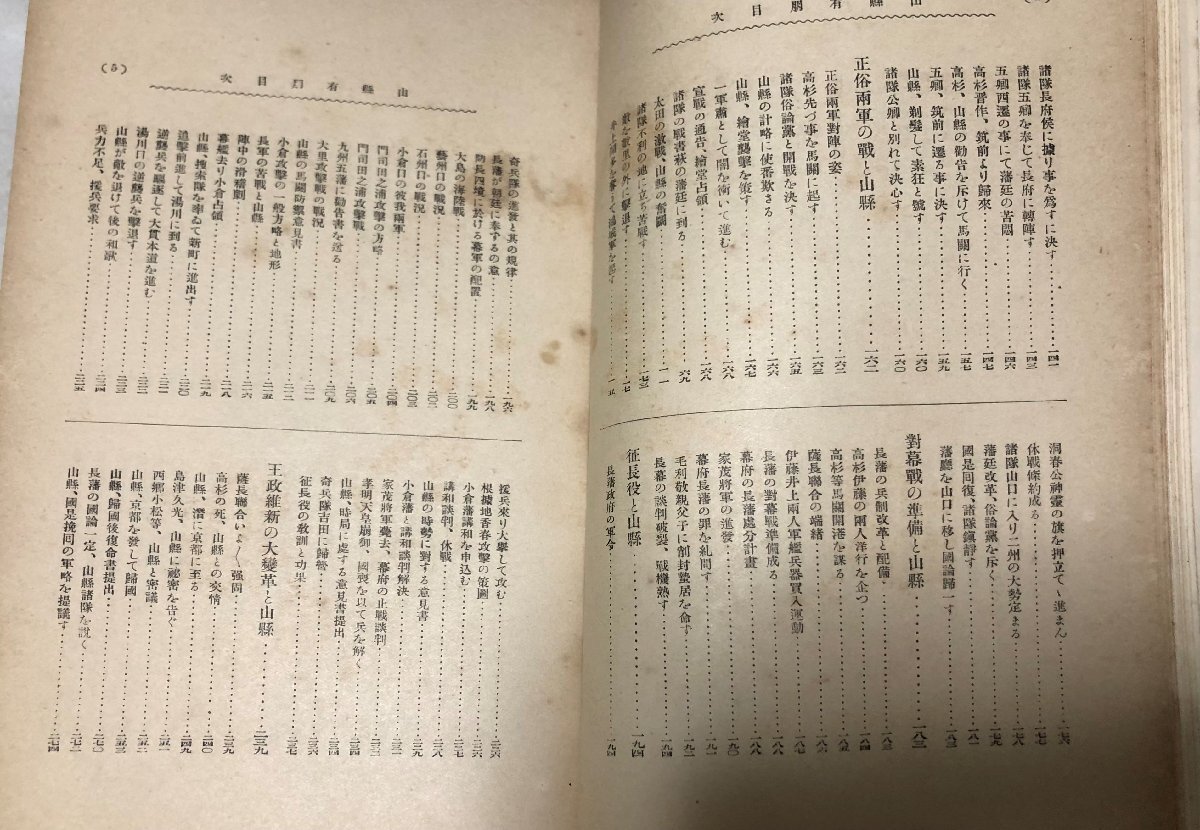 山縣有朋目次
諸隊長府侯に據り事を爲すに決す…一四一
諸隊五卿を奉じて長府に轉陣す…一四三
五卿西遷の事にて藩廷の苦悶…一四六
高杉晋作、筑前より歸來…一四七
高杉、山縣の勸告を斥けて馬關に行く…一五七
五卿、筑前に遷る事に決す…一五九
山縣、剃髮して素狂と號す
諸隊公卿と別れて決心す…一六〇
正俗兩軍の戰と山縣…一六二
正俗兩軍對陣の姿…一六二
高杉先づ事を馬關に起す…一六三
諸隊俗論黨と開戰を決す…一六五
山縣の計略に使番欺さる…一六六
山縣、繪堂襲擊を策す…一六七
一軍肅として闇を衝いて進む…一六八
宣戰の通告、繪堂占領…一六八
諸隊の戰書萩の藩廷に到る…六九
太田の激戰、山縣の奮鬪
諸隊不利の地に立ち苦戰す…一七三
敵を數里の外に擊退す
洞春公神靈の旗を押立てゝ進まん…一七六
休戰條約成る…一七七
諸隊山口に入り二州の大勢定まる…一七八
藩廷改革、俗論黨を斥く…一七九
國是回復、諸隊鎭靜す…一八一
藩廳を山口に移し國論歸一す…一八二
對幕戰の準備と山縣…一八三
長藩の兵制改革と配備…一八三
高杉伊藤の兩人洋行を企つ…一八四
高杉等馬關開港を謀る…一八五
薩長聯合の端緖…一八六
伊藤井上兩人軍艦兵器買入運動…一八七
長藩の對幕戰準備成る…一八八
幕府の長藩處分計畫…一八八
家茂將軍の進發…一九〇
幕府長藩の罪を糺問す…一九一
毛利敬親父子に削封蟄居を命ず…一九二
長幕の談判破裂、戰機熟す…一九三
征長役と山縣…一九四
長藩政府の軍令…一九四
山縣有朋目次
(5)
奇兵隊の進發と其の規律…一九六
長藩が朝廷に奉ずるの意…一九八
防長四境に於ける幕軍の配置…一九九
大島の海陸戰…二〇〇
藝州口の戰況…二〇二
石州口の戰況…二〇三
小倉口の彼我兩軍…二〇四
門司田之浦攻擊の方略…二〇五
門司田之浦攻擊戰…二〇六
九州五藩に勸告書を送る…二〇九
大里攻擊戰の戰況…二一一
山縣の馬關防禦意見書
小倉攻擊の一般方略と地形
長軍の苦戰と山縣…二一五
陣中の滑稽劇…二一六
幕艦去り小倉占領…二一八
山縣、搜索隊を率ゐて新町に進出す…二一九
追擊前進して湯川に到る…二二〇
逆襲兵を驅逐して大貫本道を進む…二二一
湯川口の逆襲兵を擊退す
山縣が敵を退けて後の和歌
兵力不足、援兵要求…二二五
援兵來り大擧して攻む…二二六
根據地香春攻擊の策圖…二二六
小倉藩講和を申込む…二二七
講和談判、休戰…二二八
山縣の時勢に對する意見書
小倉藩と講和談判解決…二三一
家茂將軍薨去、幕府の止戰談判
孝明天皇崩御、國喪を以て兵を解く…二三四
山縣、時局に處する意見書提出
奇兵隊吉田に歸營…二三六
征長役の敎訓と功果…二三七
王政維新の大變革と山縣…二三九
薩長聯合いよ〱强固…二三九
高杉の死、山縣との交情…二四〇
山縣、潛に京都に至る…二四九
島津久光、山縣に祕密を告ぐ…二五一
西鄕小松等、山縣と密議…二五二
山縣、京都を發して歸國…二五三
山縣、歸國後復命書提出
長藩の國論一定、山縣諸隊を說く…二七二
山縣、國是挽回の軍略を提議す…二七四